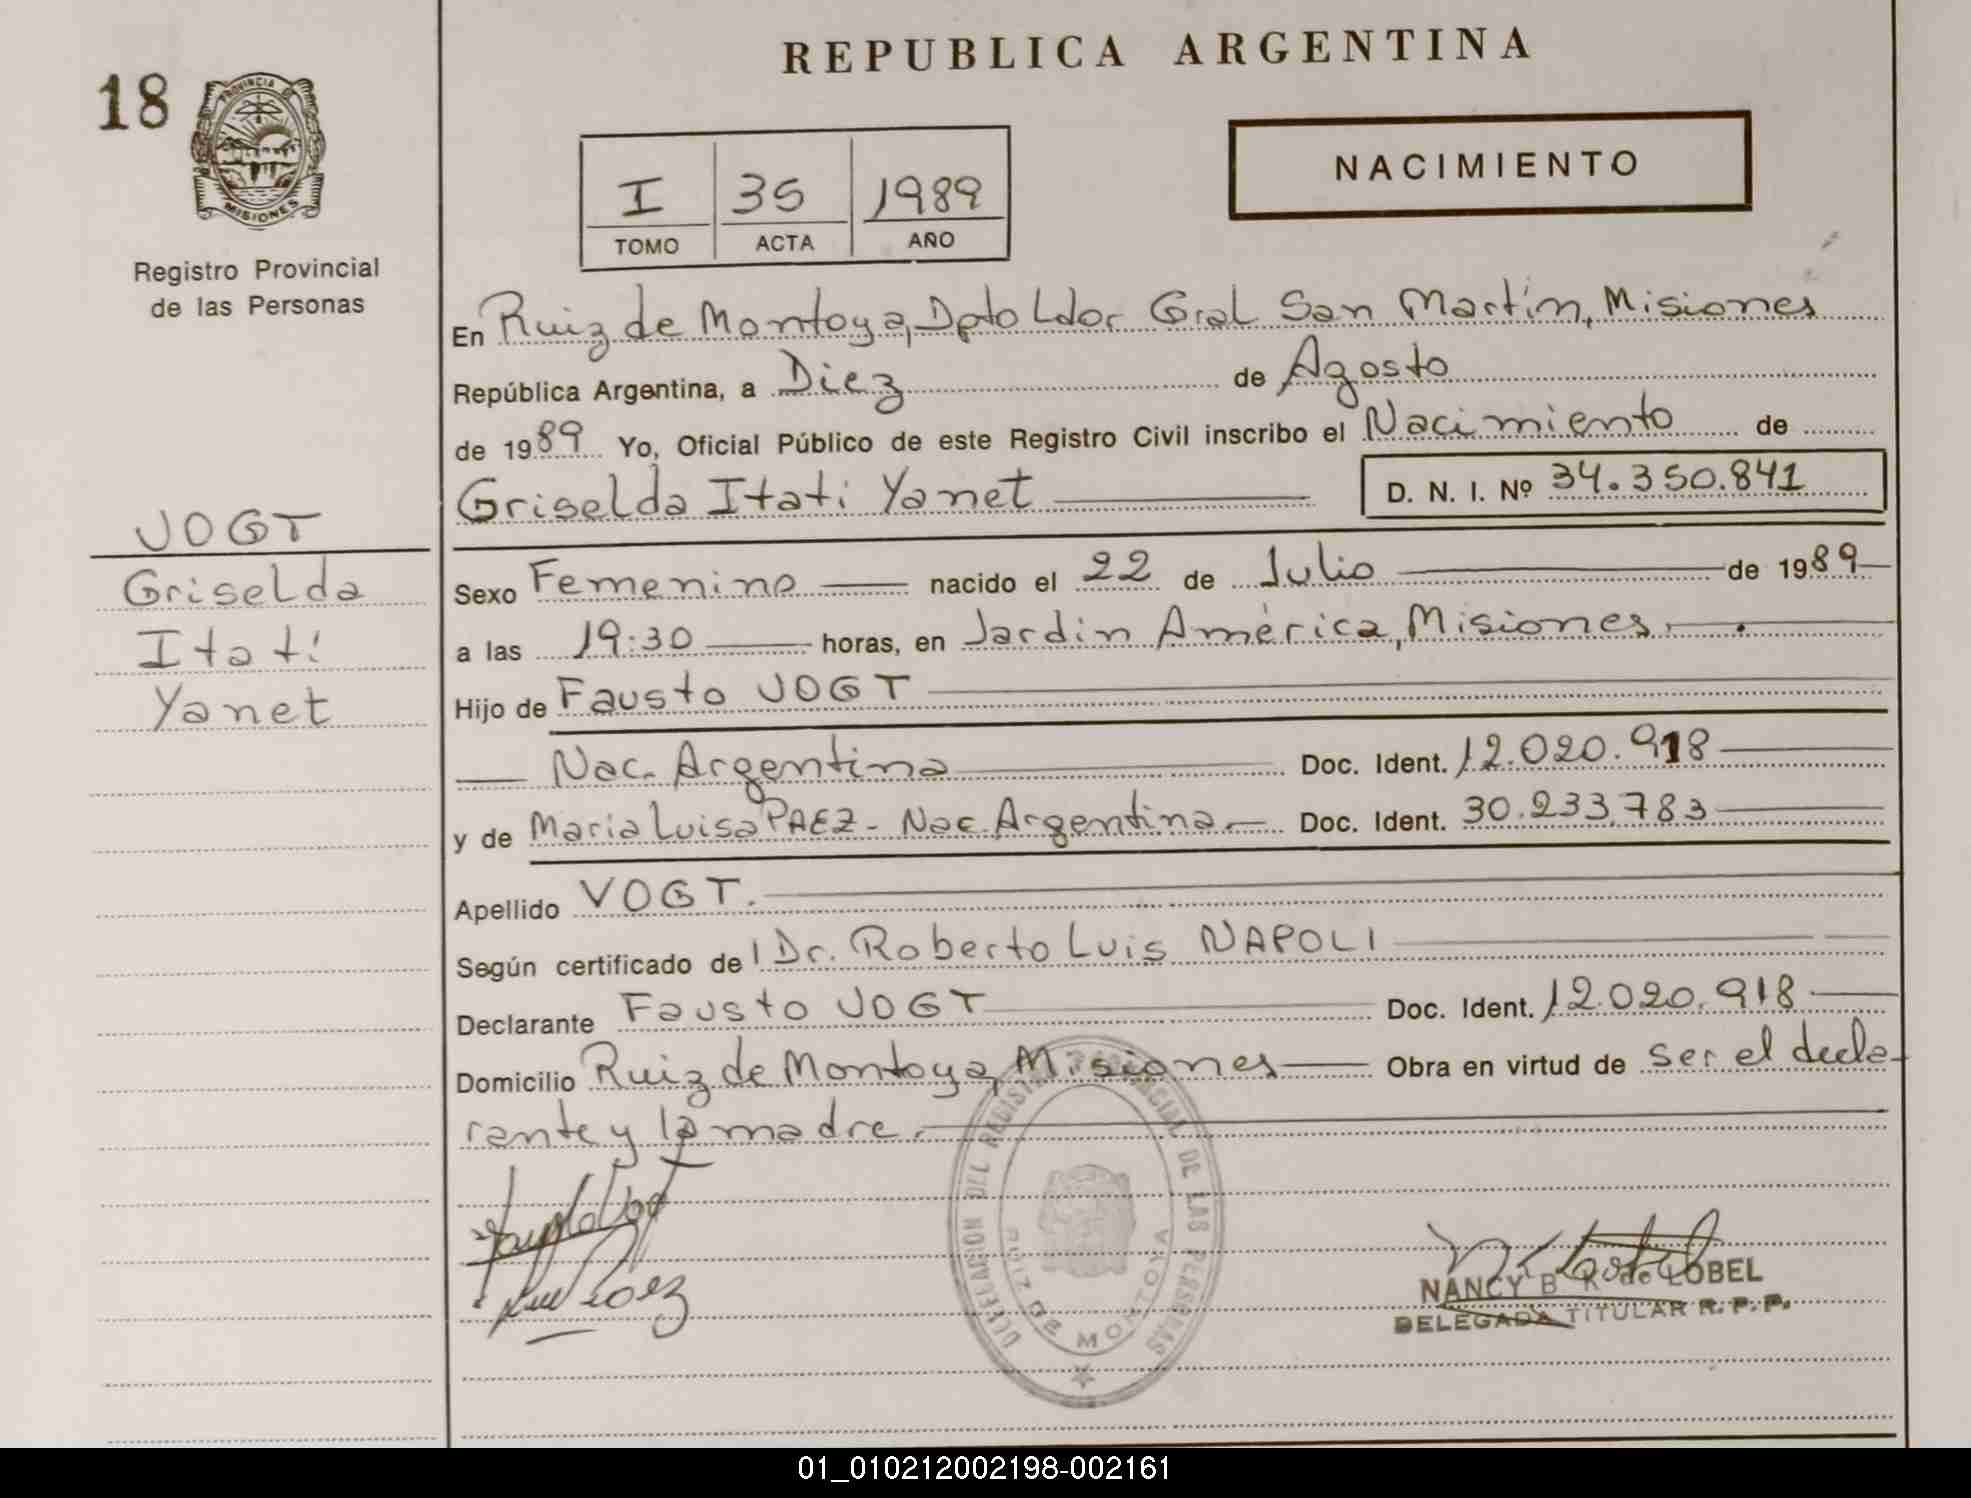 REPUBLICA ARGENTINA
18
PROVINCIA DE
MISIONES
Registro Provincial
de las Personas
I 35 1989
TOMO ACTA AÑO
NACIMIENTO
En Ruiz de Montoya, Dpto Ldor Gral San Martín, Misiones
República Argentina, a Diez de Agosto
de 1989 Yo, Oficial Público de este Registro Civil inscribo el Nacimiento de
Griselda Itati Yanet
D. N. I. Nº 34.350.841
VOGT
Griselda
Itatí
Yanet
Sexo Femenino nacido el 22 de Julio de 1989
a las 19:30 horas, en Jardín América, Misiones.
Hijo de Fausto VOGT
Nac. Argentina Doc. Ident. 12.020.918
y de Maria Luisa PAEZ - Nac. Argentina.- Doc. Ident. 30.233.783
Apellido VOGT.
Según certificado del Dr. Roberto Luis NAPOLI
Declarante Fausto VOGT Doc. Ident. 12.020.918
Domicilio Ruiz de Montoya, Misiones Obra en virtud de ser el decla-
rante y la madre.
DELEGACION DEL REGISTRO PROVINCIAL DE LAS PERSONAS
RUIZ DE MONTOYA
NANCY B. R. de LOBEL
DELEGADA TITULAR R. P. P.
01_010212002198-002161